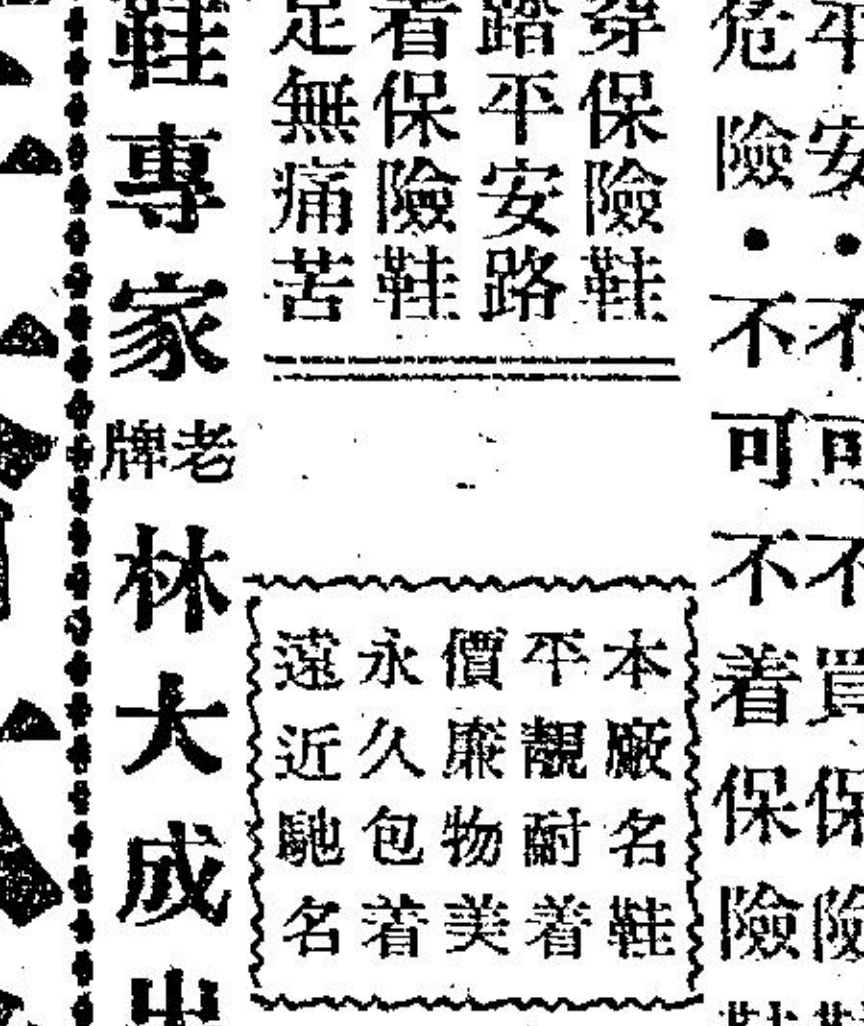 平安・不可不買保險鞋
危險・不可不着保險鞋
穿保險鞋
踏平安路
着保險鞋
足無痛苦
本廠名鞋
平靚耐着
價廉物美
永久包着
遠近馳名
鞋專家
老牌
林大成出